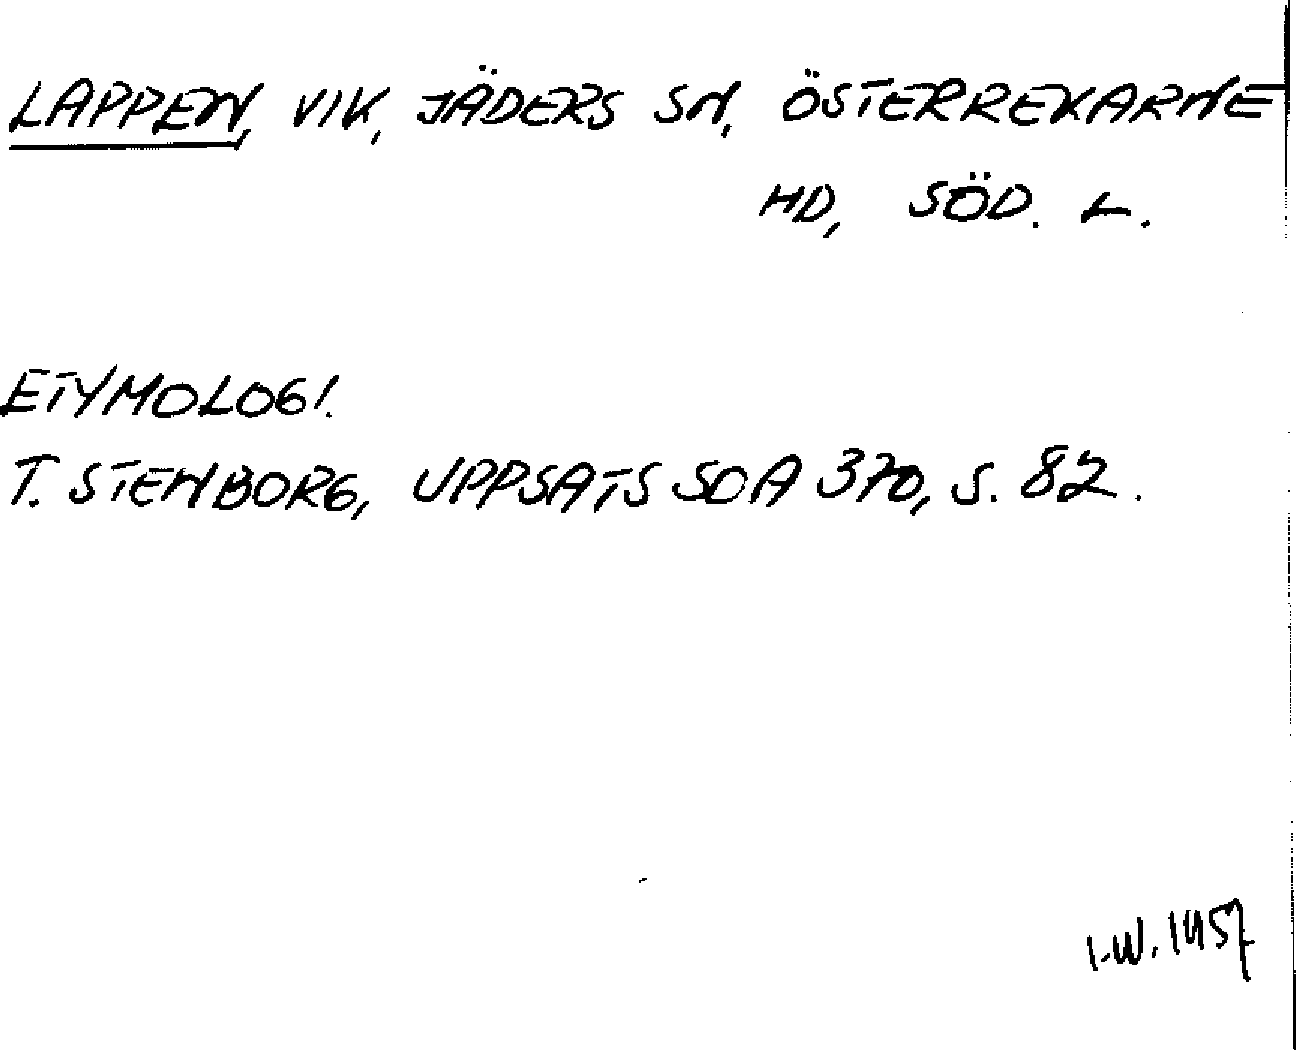 LAPPEN, VIK, JÄDERS SN, ÖSTERREKARNE
HD, SÖD. L.
ETYMOLOGI.
T. STENBORG, UPPSATS SOA 370, S. 82.
I.W. 1957